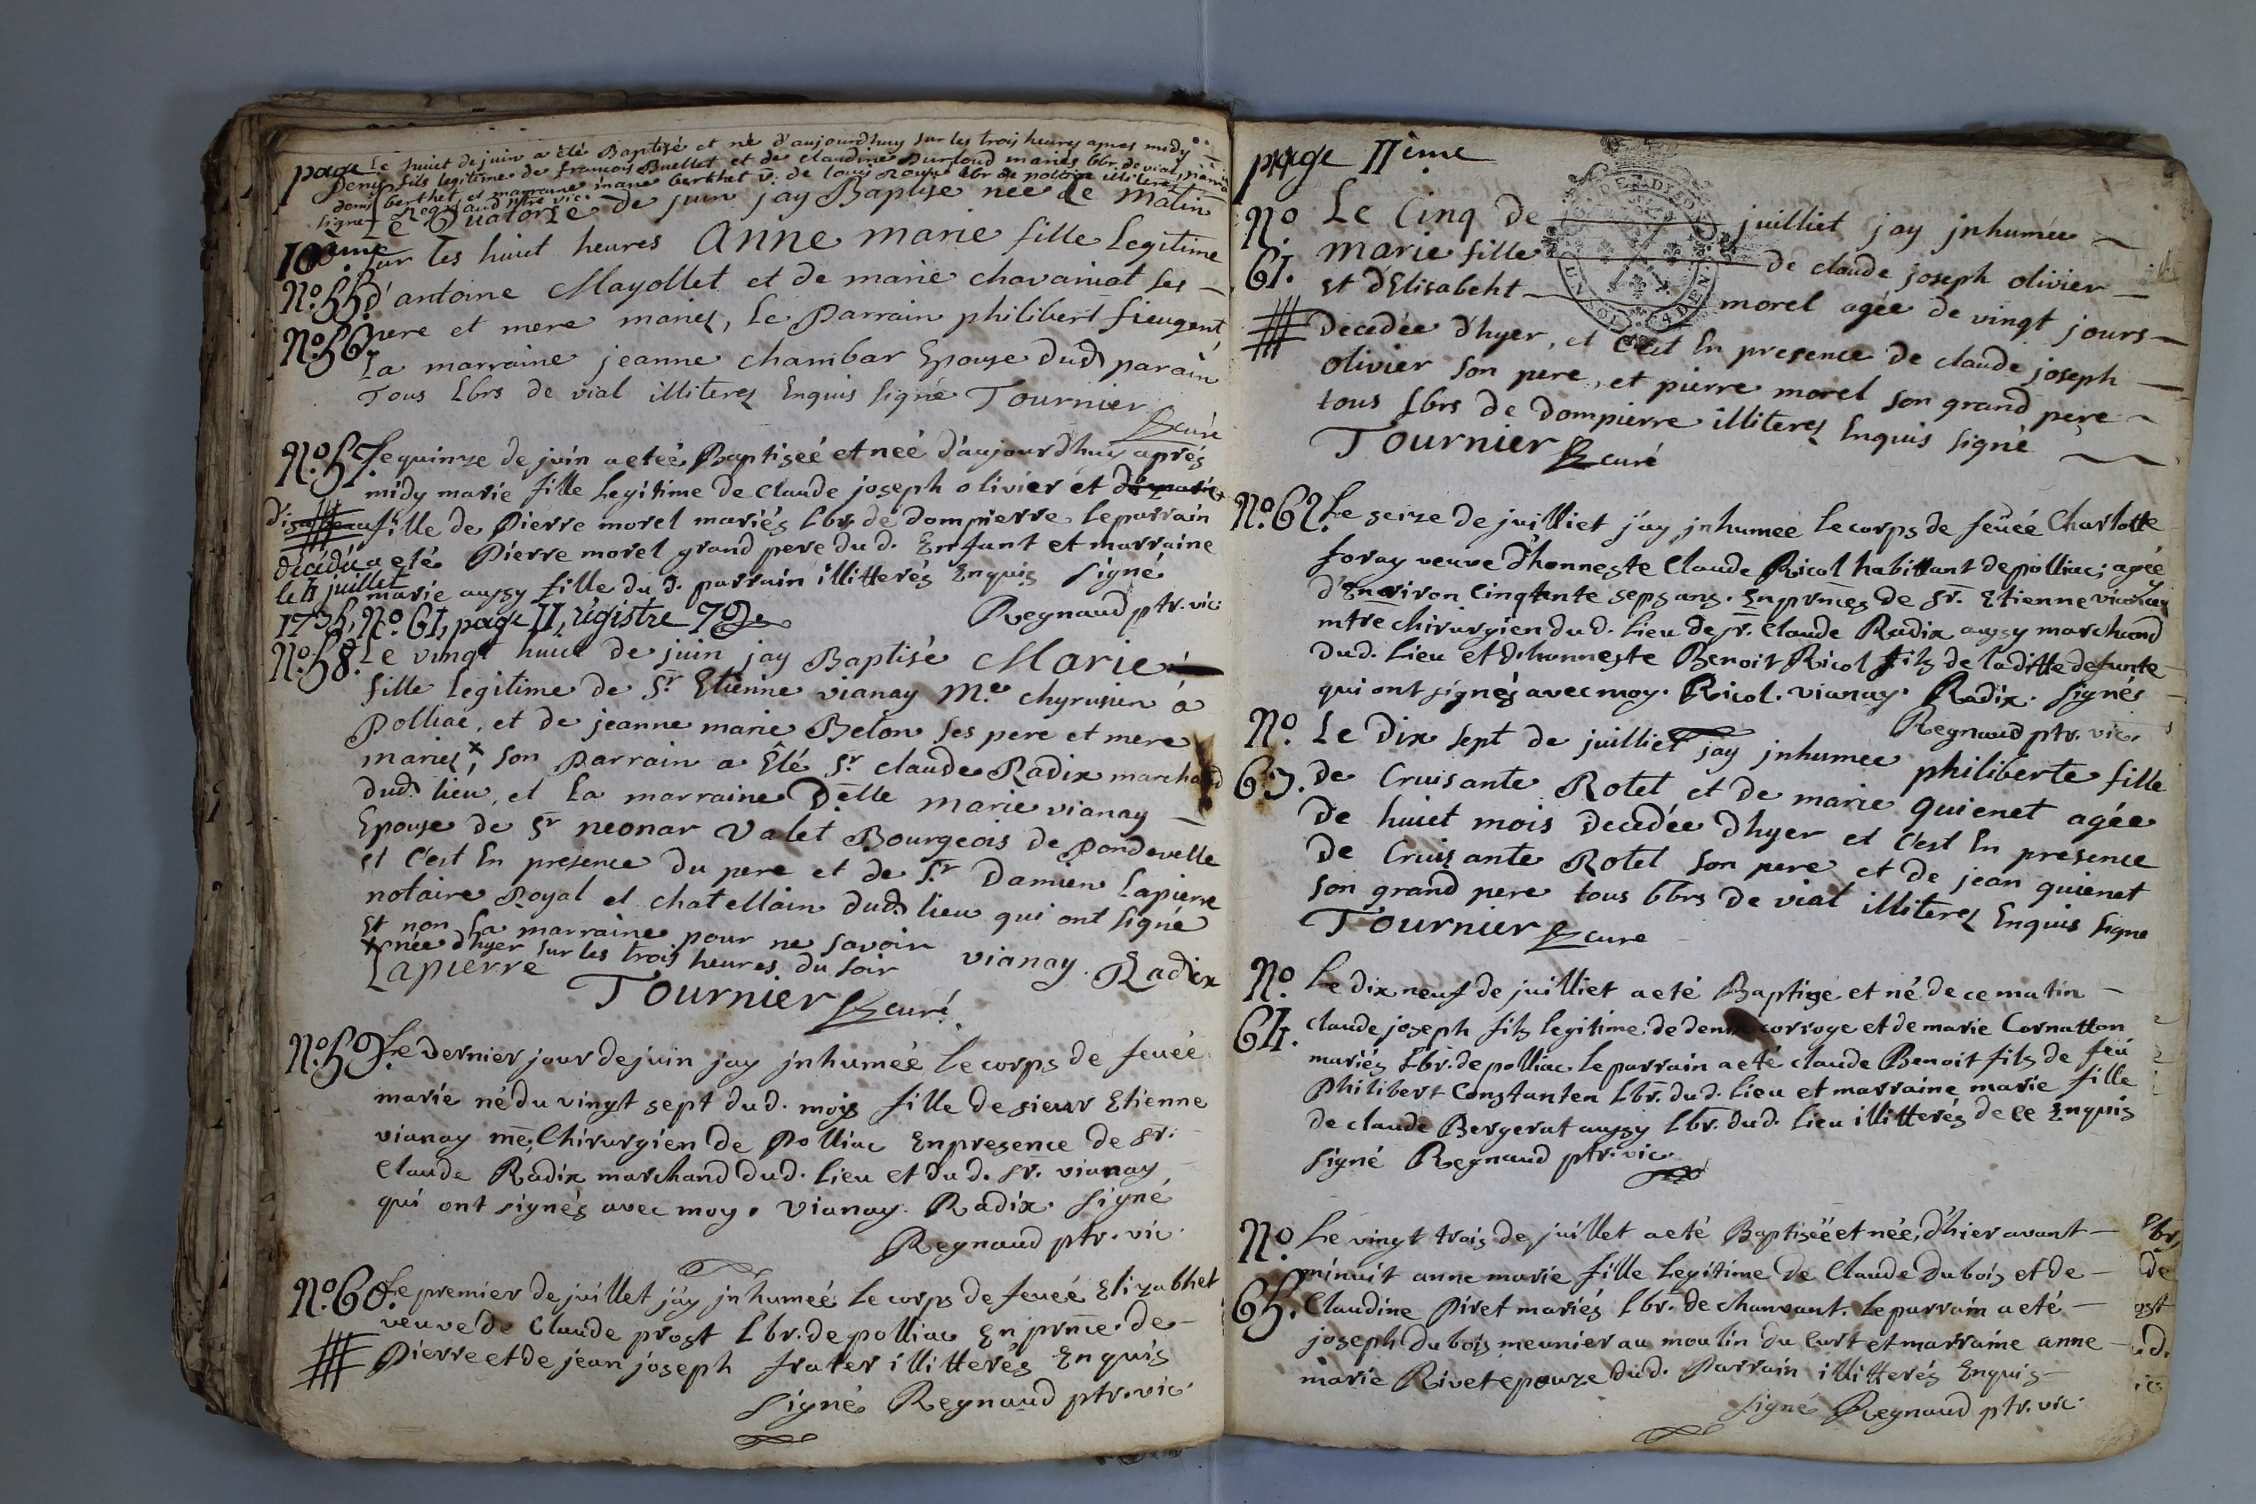 page 10ème
Le huict de juin a été Baptizé et né d'aujourdhuy sur les trois heures apres midy
Denis fils legitime de francois Buellet et de claudine Durtoud mariés lbr. de vial, parrain
denis berthet, et marraine marie berthet v. de louis Rouse lbr de polliac illiterés
signé Regnaud ptre vic.
Le Quatorze de juin jay Baptise née de Matin
No. 55. sur les huict heures Anne marie fille Legitime
d'antoine Mayollet et de marie chavaniat ses
No. 56. pere et mere mariez, Le Parrain philibert fieugent
La marraine jeanne chambar Epouse dud parain
Tous Lbrs de vial illiterez Enquis signé Tournier
curé
No. 57. Le quinze de juin a eteé Baptiseé et neé d'aujourdhuy aprés
midy marie fille Legitime de claude joseph olivier et
d'isabeau fille de Pierre morel mariés Lbr. de dompierre le parrain
a eté Pierre morel grand pere du d. Enfant et marraine
marie aussy fille du d. parrain illitterés Enquis signé
Regnaud ptr. vic
décédée
le 4 juillet
1735, No. 61, page 11, régistre 7e
No. 58. Le vingt huict de juin jay Baptisé Marie
fille Legitime de Sr Etienne vianay Me. chyrurien à
Polliac, et de jeanne marie Belon ses pere et mere
mariez x, son Parrain a Été Sr claude Radix marchand
dud. lieu, et La marraine Delle marie vianay
Epouse de Sr neonar Valet Bourgeois de Pondevelle
et c'est En presence du pere et de Sr Damien Lapierre
notaire Royal et chatellain dud lieu qui ont signé
et non La marraine pour ne savoir
x née d'hyer sur les trois heures du soir vianay. Radix
Lapierre
Tournier curé
No. 59. Le dernier jour de juin jay jnhumeé Le corps de feueé
marie né du vingt sept du d. mois fille de sieur Etienne
vianay me. Chirurgien de Polliac En presence de sr.
Claude Radix marchand du d. Lieu et du d. sr. vianay
qui ont signés avec moy. Vianay. Radix. Signé
Regnaud ptr. vic.
No. 60. Le premier de juillet j'ay jnhumeé Le corps de feueé Elizabhet
veuve de Claude prost Lbr. de polliac En prnce. de
Pierre et de jean joseph frater illitterés Enquis
signé Regnaud ptr. vic.
page 11ème
No 61. Le Cinq de juilliet jay jnhumée
Marie fille de claude joseph olivier
et dElisabeht morel agée de vingt jours
Decedée d'hyer, et C'est En presence de claude joseph
olivier son pere, et pierre morel son grand pere
tous Lbrs de Dompierre illiterez Enquis signé
Tournier curé
No. 62. Le seize de juilliet j'ay jnhumeé Le corps de feüeé Charlotte
foray veuve d'honneste Claude Ricol habittant de polliac; ageé
d'Environ Cinqtante sept ans. En prnces de sr. Etienne vianay
mtre chirurgien du d. Lieu de sr. Claude Radix aussy marchand
du d. Lieu et d'honneste Benoit Ricol fils de laditte defunte
qui ont signés avec moy. Ricol. vianay. Radix. Signés
Regnaud ptr. vic.
No. 63. Le Dix sept de juilliet jay jnhumee philiberte fille
de Cruisante Rotet et de marie quienet agée
De huict mois Decedée d'hyer et C'est En presence
De Cruisante Rotet son pere et de jean quienet
son grand pere tous Lbrs De vial illiterez Enquis signe
Tournier cure
No. 64. Le dix neuf de juilliet a eté Baptisé et né de ce matin
claude joseph fils legitime de denis corroge et de marie Cornatton
mariés Lbr. de polliac. Le parrain a eté claude Benoit fils de feü
Philibert Constanten Lbr. du d. Lieu et marraine marie fille
de claude Bergerat aussy Lbr. du d. Lieu illitterés de ce Enquis
signé Regnaud ptr. vic.
No 65. Le vingt trois de juillet a eté Baptiseé et née, d'hier avant
minuit anne marie fille Legitime de Claude Dubois et de
Claudine Piret mariés Lbr. de chanvant. Le parrain a eté
joseph Dubois meunier au moulin du Curt et marraine anne
marie Rivet epouze du d. Parrain illitterés Enquis
signé Regnaud ptr. vic.